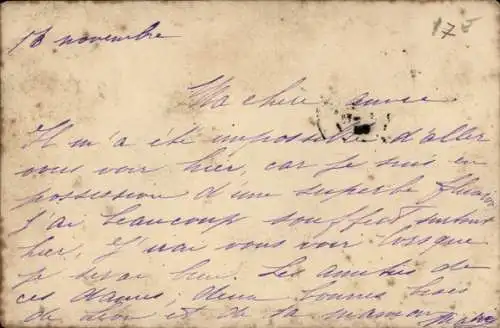 16 novembre
175
Ma chère amie
Il m'a été impossible d'aller
vous voir hier, car je suis en
possession d'une superbe fluxion
J'ai beaucoup souffert surtout
hier, J'irai vous voir lorsque
je serai bien. Les amitiés de
ces dames, deux bonnes bises
de Léon et de sa maman